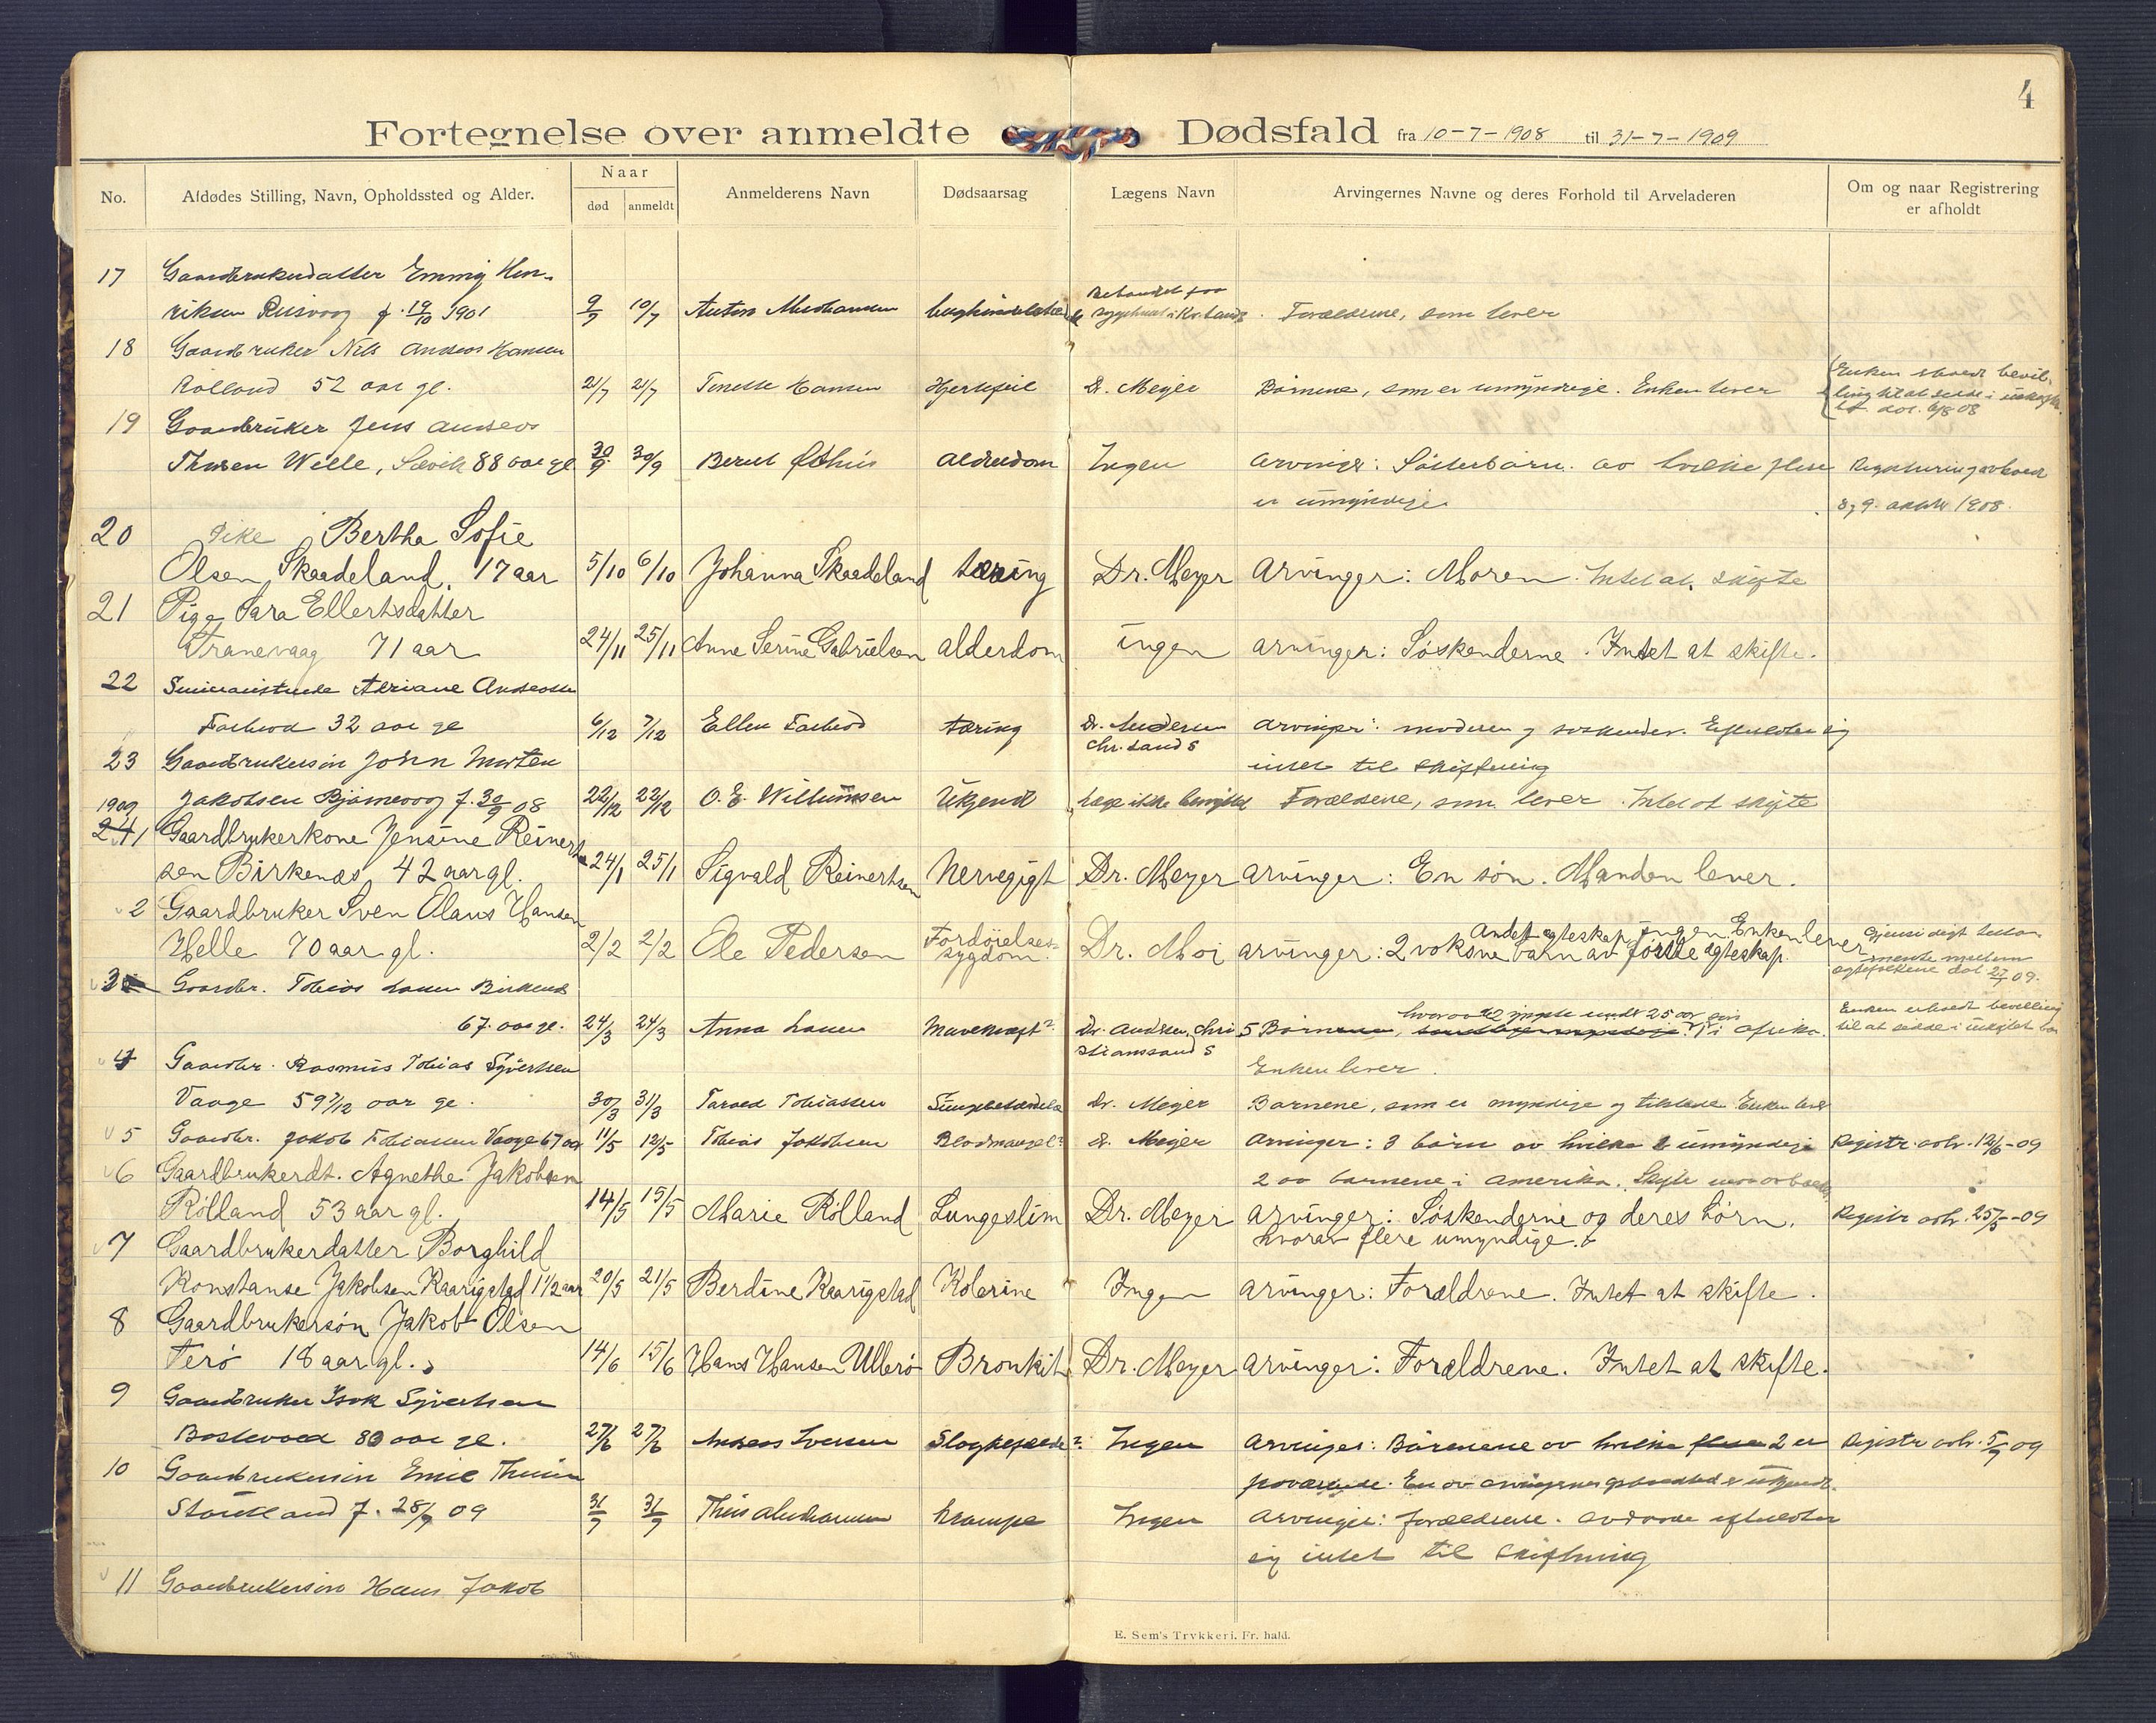 4
Fortegnelse over anmeldte Dødsfald fra 10-7-1908 til 31-7-1909
No. Afdødes Stilling, Navn, Opholdssted og Alder. Naar død anmeldt Anmelderens Navn Dødsaarsag Lægens Navn Arvingernes Navne og deres Forhold til Arveladeren Om og naar Registrering er afholdt
17 Gaardbrukerdatter Emmy Hen-
riksen Risvaag f. 19/10 1901 9/7 10/7 Anton Forældrene, som lever
18 Gaardbruker Nils Andreas Hansen
Rolland 52 aar gl. 21/7 21/7 Tomelle Hansen Hjertefeil Dr. Meyer Børnene, som er umyndige. Enken lever
Enken erhvervet bevil-
ling til at sidde i uskiftet
bo dat. 6/8 08
19 Gaardbruker Jens Andreas
Thorsen Wille, Sævik 88 aar gl 30/9 30/9 Berul Østhus Alderdom Ingen Arvinger: Søsterbørn av hvilke flere Registrering avholdt
er umyndige 8, 9. oktbr 1908.
20 Pike Bertha Sofie
Olsen Skaadeland, 17 aar 5/10 6/10 Johanna Skaadeland tæring Dr. Meyer Arvinger: Moren. Intet at skifte
21 Pige Sara Ellertsdatter
Tranevaag 71 aar 24/11 25/11 Anne Serine Gabrielsen alderdom ingen arvinger: Søskenderne. Intet at skifte.
22 Adriane Andersen
32 aar gl 6/12 7/12 Ellen tæring Dr. Andersen Arvinger: moderen og søskender. Efterlater sig
Chr. sand S intet til skiftning
23 Gaardbrukersøn John Morten
Jakobsen Bjørnevaag f. 30/9 08 22/12 22/12 O. E. Willumsen Ukjendt Læge ikke benyttet Forældrene, som lever. Intet at skifte
1909
24 1 Gaardbrukerkone Jensine Reinert-
sen Birkenæs, 42 aar gl. 24/1 25/1 Sigvald Reinertsen Nervegigt Dr. Meyer arvinger: En søn. Manden lever.
2 Gaardbruker Sven Olaus Hansen
Andet egteskap ingen. Enken lever
Helle 70 aar gl. 2/2 2/2 Ole Pedersen Fordøielses-
sygdom. Dr. Moi arvinger: 2 voksne børn av første egteskap.
Gjensidigt testa-
mente mellem
egtefolkene dat 27/7 09.
3 Gaardbr. Tobias Larsen Birkenes
67 aar gl. 24/3 24/3 Anna Larsen Mavekræft? Dr. Andersen, Chri- 5 Børn
hvorav 2 yngste under 25 aar
i Afrika.
Enken erhvervet bevilling
til at sidde i uskiftet bo
stianssand S
Enken lever.
4 Gaardbr. Rasmus Tobias Syvertsen
Vaage 59 7/12 aar gl. 30/3 31/3 Tarald Tobiassen Lungebetændelse Dr. Meyer Børnene, som er myndige og tilstede. Enken lever
5 Gaardbr. Jakob Tobiassen Vaage 67 aar 11/5 12/5 Tobias Jakobsen Blodmangel? Dr. Meyer Arvinger: 3 børn av hvilke 2 umyndige Registr. avh. 12/6-09
2 av barnene i Amerika.
6 Gaardbrukerdt. Agnethe Jakobsen
Rølland 53 aar gl. 14/5 15/5 Marie Rølland Lungeslim Dr. Meyer arvinger: Søskenderne og deres børn, Registr avh. 25/5-09
hvorav flere umyndige.
7 Gaardbrukerdatter Borghild
Konstanse Jakobsen Kaarigstad 1 1/2 aar 20/5 21/5 Berdine Kaarigstad Kolerine Ingen arvinger: Forældrene. Intet at skifte.
8 Gaardbrukersøn Jakob Olsen
Terø 18 aar gl. 14/6 15/6 Hans Hansen Ullerø Bronkit Dr. Meyer arvinger: Forældrene. Intet at skifte.
9 Gaardbruker Isak Syvertsen
80 aar gl. 27/6 27/6 Andreas Iversen Slagtilfælde? Ingen Arvinger: Børnene av hvilke flere 2 er Registr avh. 5/7 09
fraværende. En av arvingernes opholdssted er ukjendt.
10 Gaardbrukersøn Emil Theisen
f. 28/7 09 31/7 31/7 Theis Krampe Ingen Arvinger: forældrene. Avdøde efterlater
sig intet til skiftning
11 Gaardbrukersøn Hans Jakob
E. Sem's Trykkeri. Fr.hald.